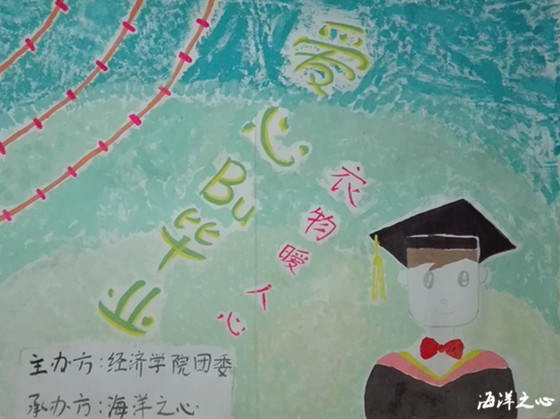 爱心Bu毕业
衣物暖人心
主办方：经济学院团委
承办方：海洋之心
海洋之心